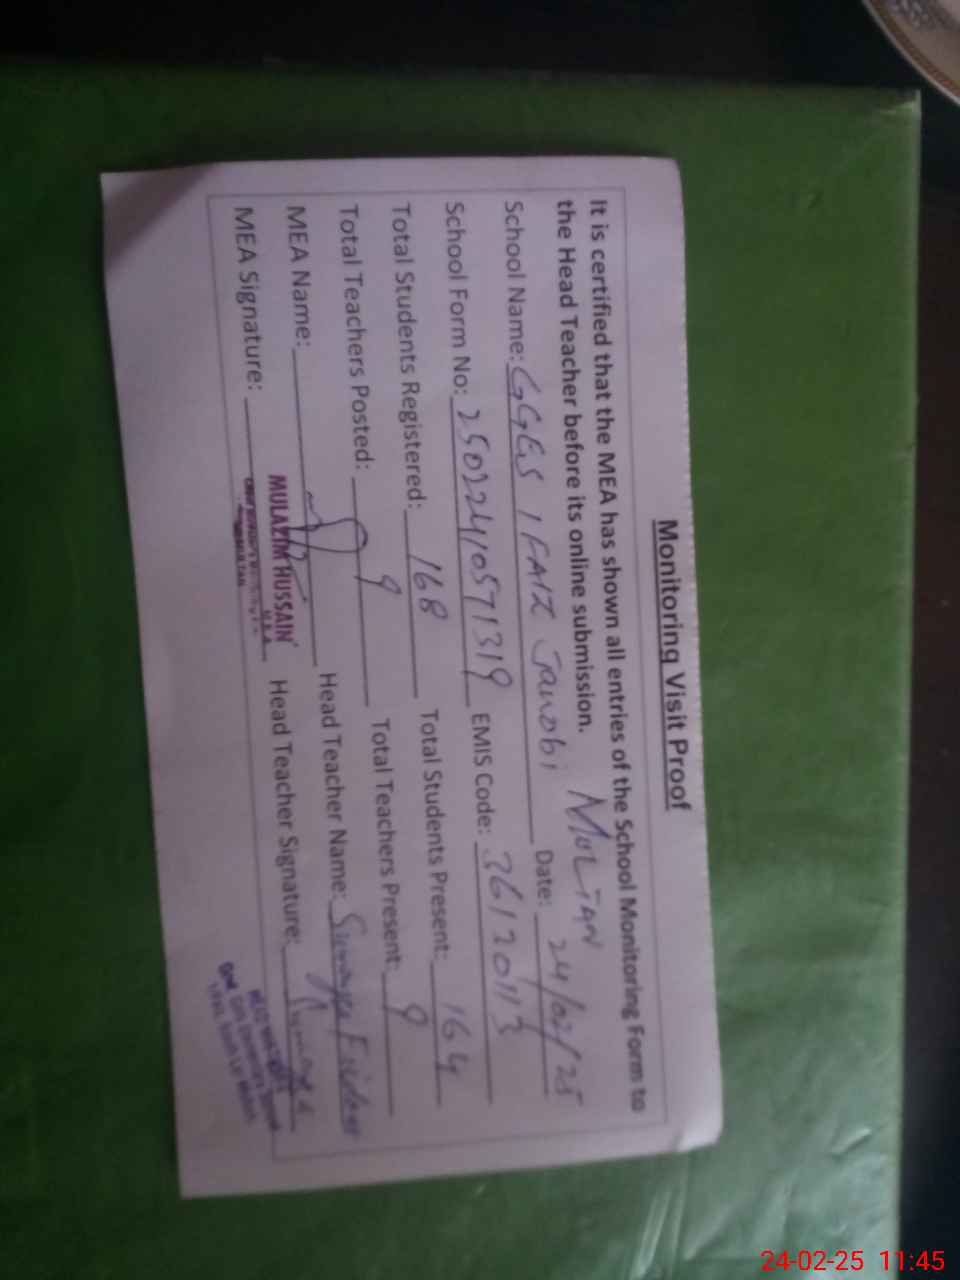 Monitoring Visit Proof
It is certified that the MEA has shown all entries of the School Monitoring Form to
the Head Teacher before its online submission.
School Name: GGES 1 FAIZ Janobi MULTAN Date: 24/02/25
School Form No: 25022410571319 EMIS Code: 36120113
Total Students Registered: 168 Total Students Present: 164
Total Teachers Posted: 9 Total Teachers Present: 9
MEA Name: Head Teacher Name: Sumaya
MEA Signature: Head Teacher Signature: Sumaya
MULAZIM HUSSAIN
M.E.A
MULTAN
24-02-25 11:45